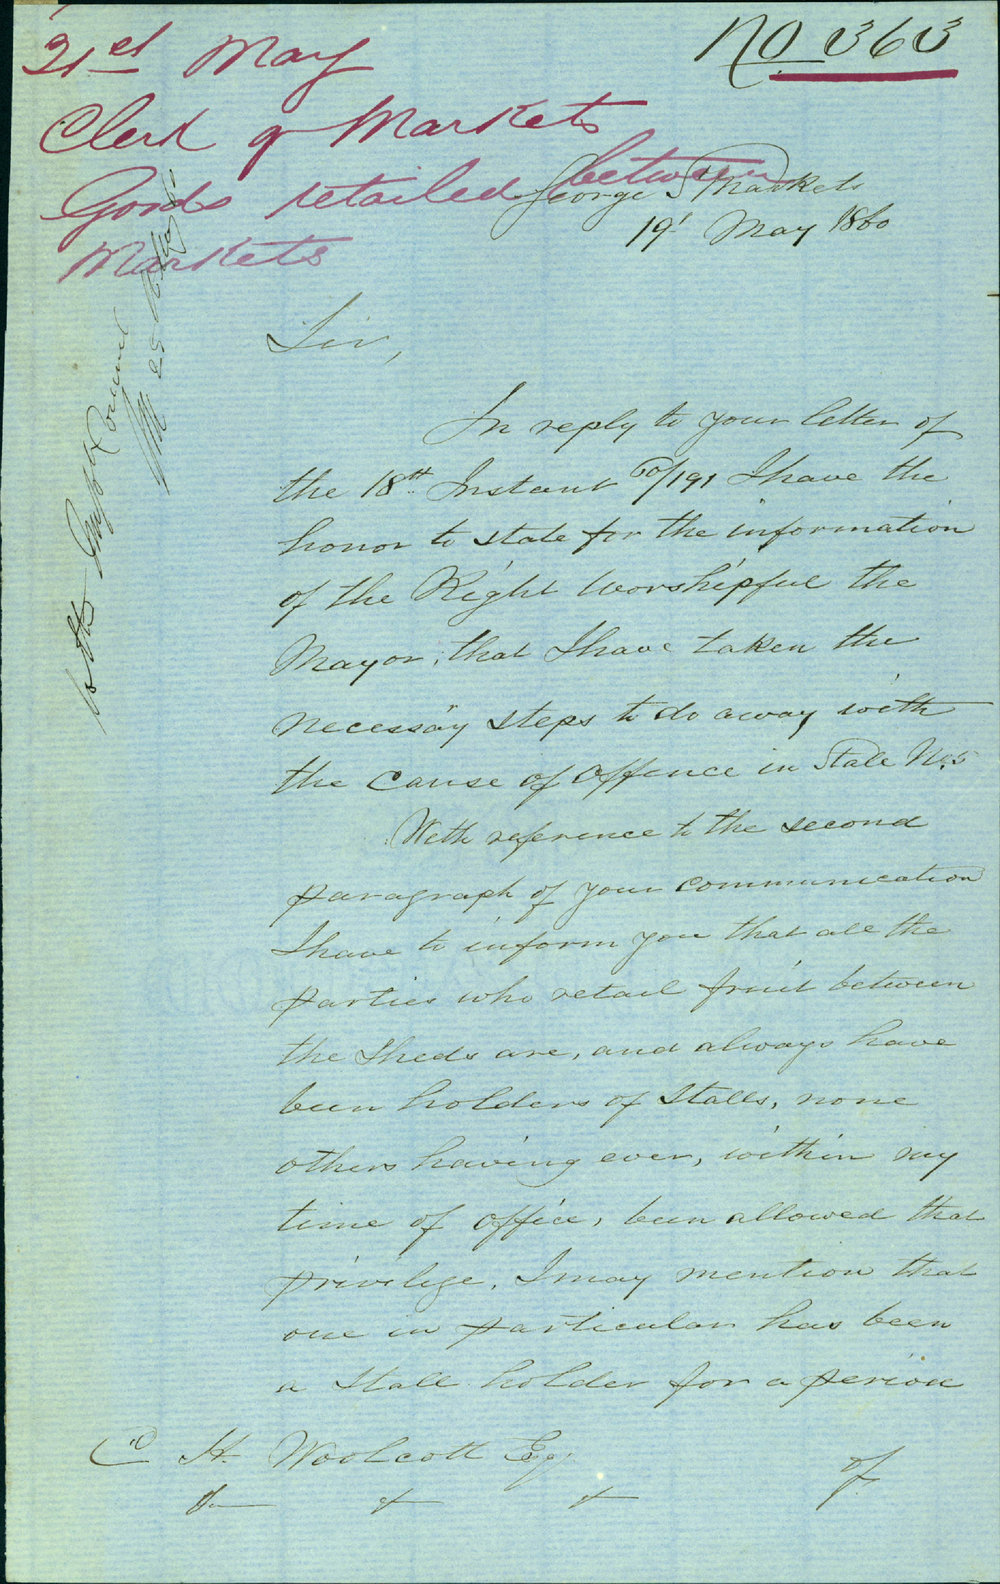 No 363
21st May
Clerk of Markets
Goods retailed between
Markets
George St Markets
19' May 1860
Sir,
In reply to your letter of
the 18th Instant 60/191 I have the
honor to state for the information
of the Right Worshipful the
Mayor, that I have taken the
necessary steps to do away with
the cause of offence in Stall No. 5
With reference to the second
paragraph of your communication
I have to inform you that all the
parties who retail fruit between
the Sheds are, and always have
been holders of Stalls, none
others having ever, within my
time of office, been allowed that
privilege, I may mention that
one in particular has been
a Stall holder for a period
of
H. Woolcott Esq.